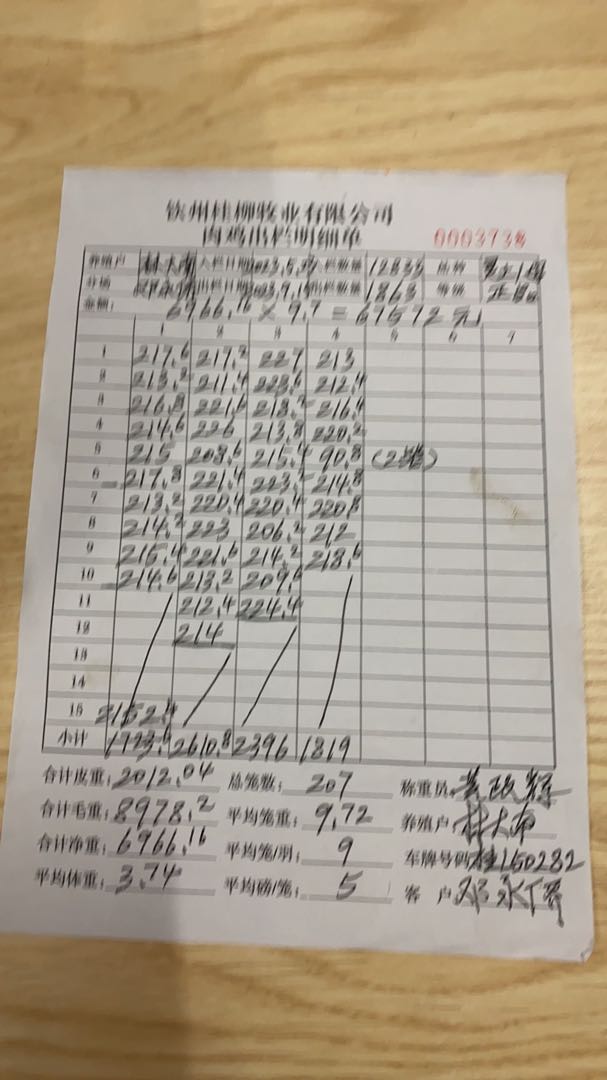 钦州桂柳牧业有限公司
肉鸡出栏明细单
0003738
养殖户 林大南 入栏日期 2023.5. 入栏数量 12835 品种
分场 出栏日期 2023.9.15 出栏数量 1863 等级 正品
金额: 6966.16 × 9.7 = 67572元
1 2 3 4 5 6 7
1 217.6 217.2 227 213
2 213.2 211.4 223.6 212.4
3 216.8 221.6 218.2 216.4
4 214.6 226 213.8 220.2
5 215 208.6 215.4 90.8 (2落)
6 217.8 221.4 223.2 214.8
7 213.2 220.4 220.4 220.8
8 214.2 223 206.2 212
9 215.4 221.6 214.2 218.6
10 214.6 213.2 209.6
11 212.4 224.4
12 214
13
14
15 2152.4
小计 2610.8 2396 1819
合计皮重: 2012.04 总笼数: 207 称重员:
合计毛重: 8978.2 平均笼重: 9.72 养殖户: 林大南
合计净重: 6966.16 平均笼/羽: 9 车牌号码: 桂L50282
平均体重: 3.74 平均磅/笼: 5 客 户: